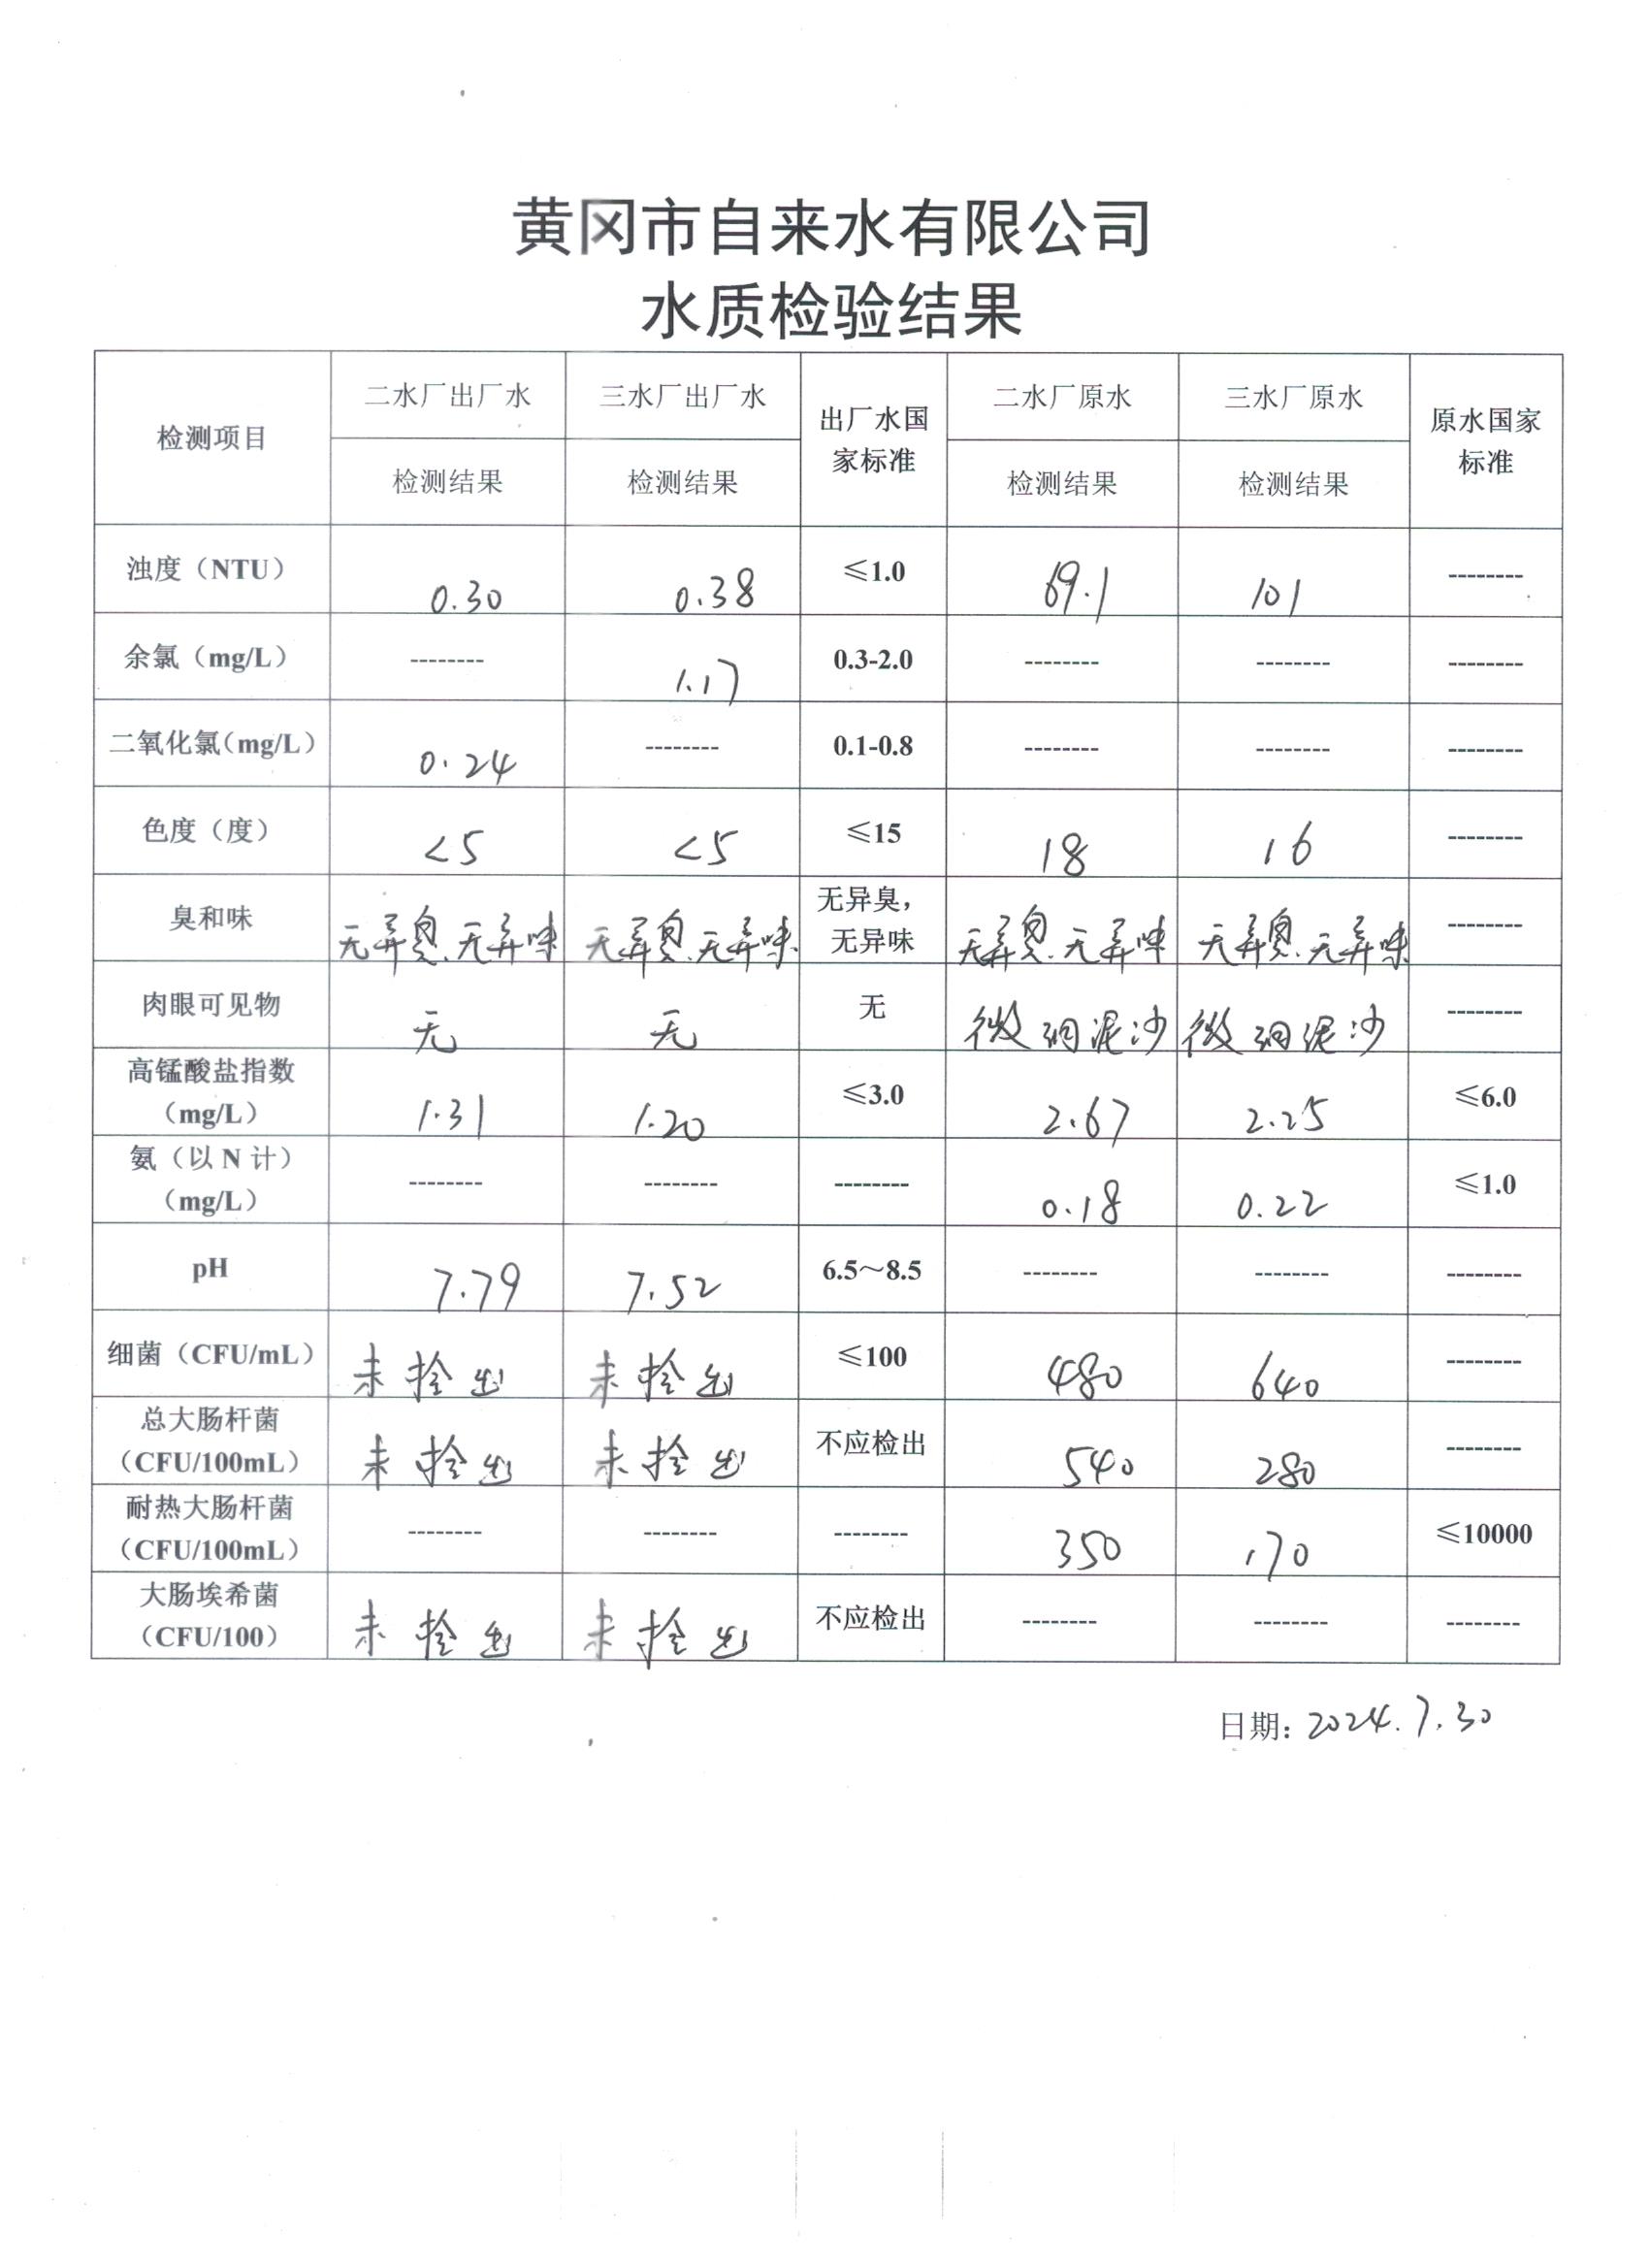 黄冈市自来水有限公司
水质检验结果
检测项目 二水厂出厂水 三水厂出厂水 出厂水国家标准 二水厂原水 三水厂原水 原水国家标准
检测结果 检测结果 检测结果 检测结果
浊度（NTU） 0.30 0.38 ≤1.0 69.1 101 --------
余氯（mg/L） -------- 1.17 0.3-2.0 -------- -------- --------
二氧化氯(mg/L) 0.24 -------- 0.1-0.8 -------- -------- --------
色度（度） <5 <5 ≤15 18 16 --------
臭和味 无异臭、无异味 无异臭、无异味 无异臭，无异味 无异臭、无异味 无异臭、无异味 --------
肉眼可见物 无 无 无 微细泥沙 微细泥沙 --------
高锰酸盐指数（mg/L） 1.31 1.20 ≤3.0 2.67 2.25 ≤6.0
氨（以 N 计）（mg/L） -------- -------- -------- 0.18 0.22 ≤1.0
pH 7.79 7.52 6.5～8.5 -------- -------- --------
细菌（CFU/mL） 未检出 未检出 ≤100 480 640 --------
总大肠杆菌（CFU/100mL） 未检出 未检出 不应检出 540 280 --------
耐热大肠杆菌（CFU/100mL） -------- -------- -------- 350 170 ≤10000
大肠埃希菌（CFU/100） 未检出 未检出 不应检出 -------- -------- --------
日期: 2024.7.30